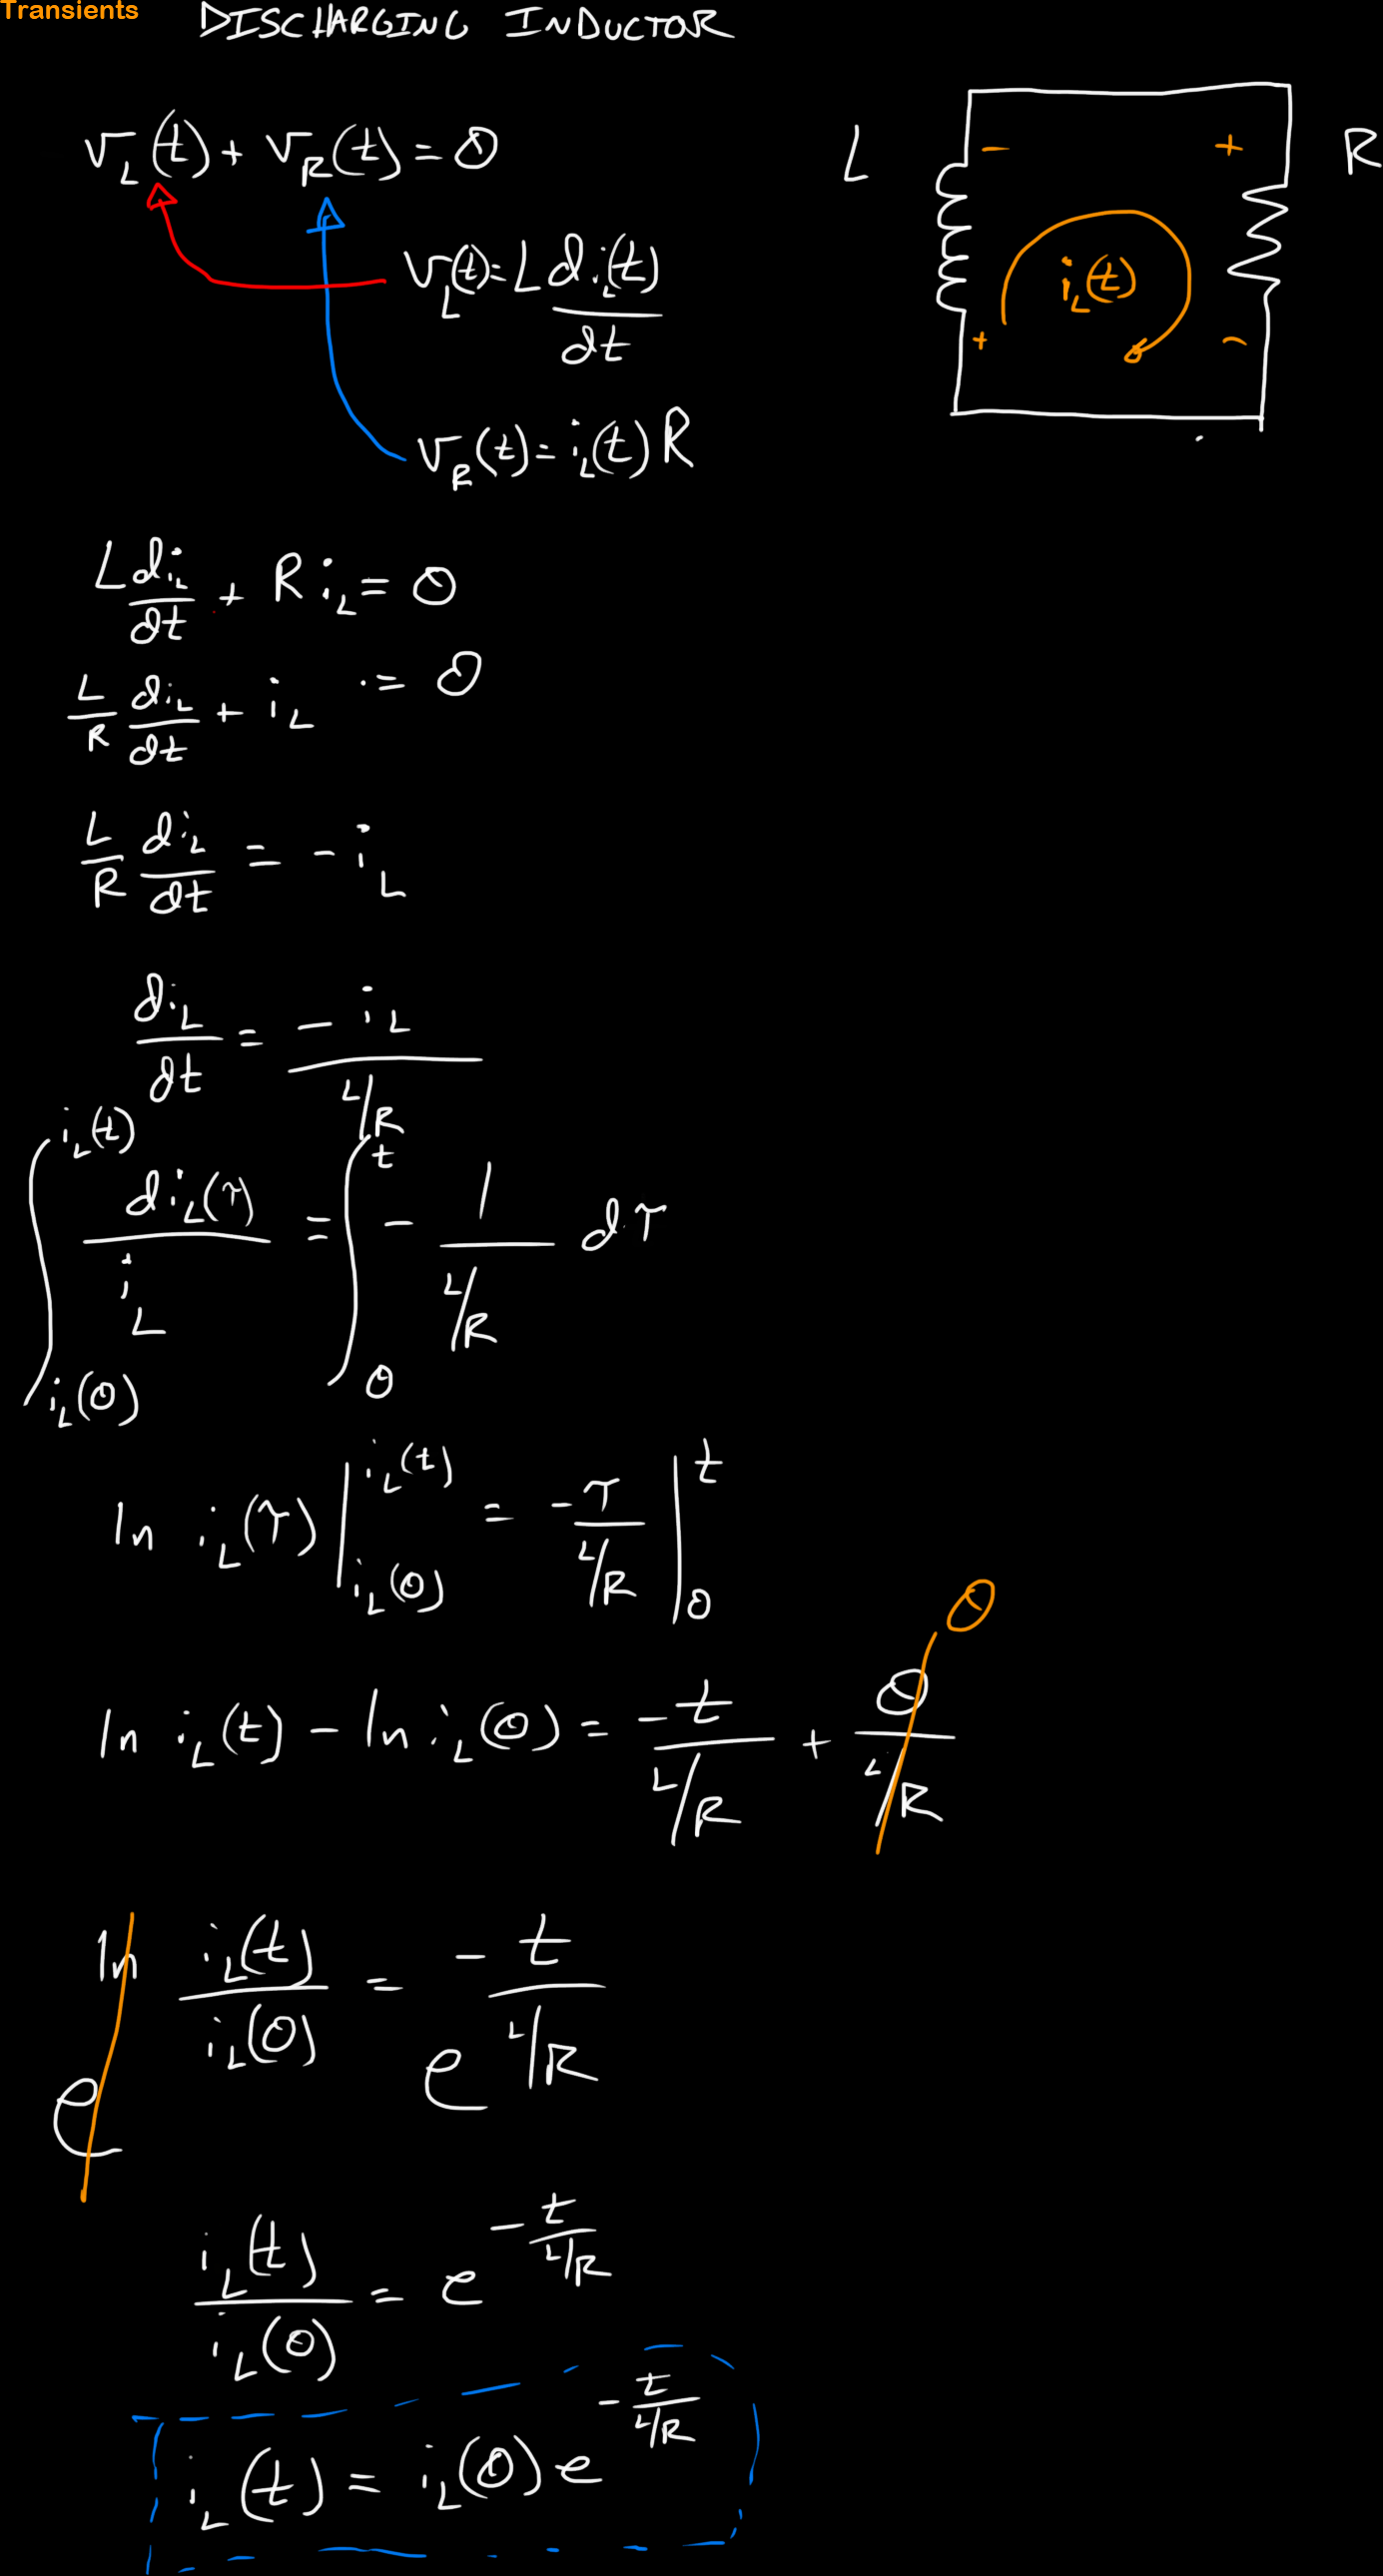 Transients
DISCHARGING INDUCTOR
v_L(t) + v_R(t) = 0
L
- +
R
v_L(t) = L di_L(t)/dt
i_L(t)
+ -
v_R(t) = i_L(t) R
L di_L/dt + R i_L = 0
L/R di_L/dt + i_L = 0
L/R di_L/dt = - i_L
di_L/dt = - i_L / (L/R)
∫_{i_L(0)}^{i_L(t)} di_L(τ)/i_L = ∫_0^t - 1/(L/R) dτ
ln i_L(τ) |_{i_L(0)}^{i_L(t)} = - τ/(L/R) |_0^t
0
ln i_L(t) - ln i_L(0) = - t/(L/R) + 0/(L/R)
e^{ln i_L(t)/i_L(0)} = e^{- t/(L/R)}
i_L(t)/i_L(0) = e^{- t/(L/R)}
i_L(t) = i_L(0) e^{- t/(L/R)}